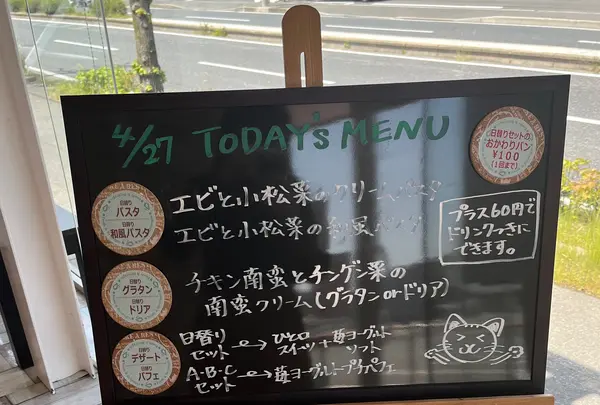 4/27 TODAY's MENU
日替りセットの
おかわりパン
¥100
(1回まで)
日替り
パスタ
日替り
和風パスタ
エビと小松菜のクリームパスタ
エビと小松菜の和風パスタ
プラス60円で
ドリンクつきに
できます。
日替り
グラタン
日替り
ドリア
チキン南蛮とチンゲン菜の
南蛮クリーム(グラタンorドリア)
日替り
デザート
日替り
パフェ
日替りセット→ひと口スイーツ+苺ヨーグルトソフト
A・B・Cセット→苺ヨーグルトプチパフェ